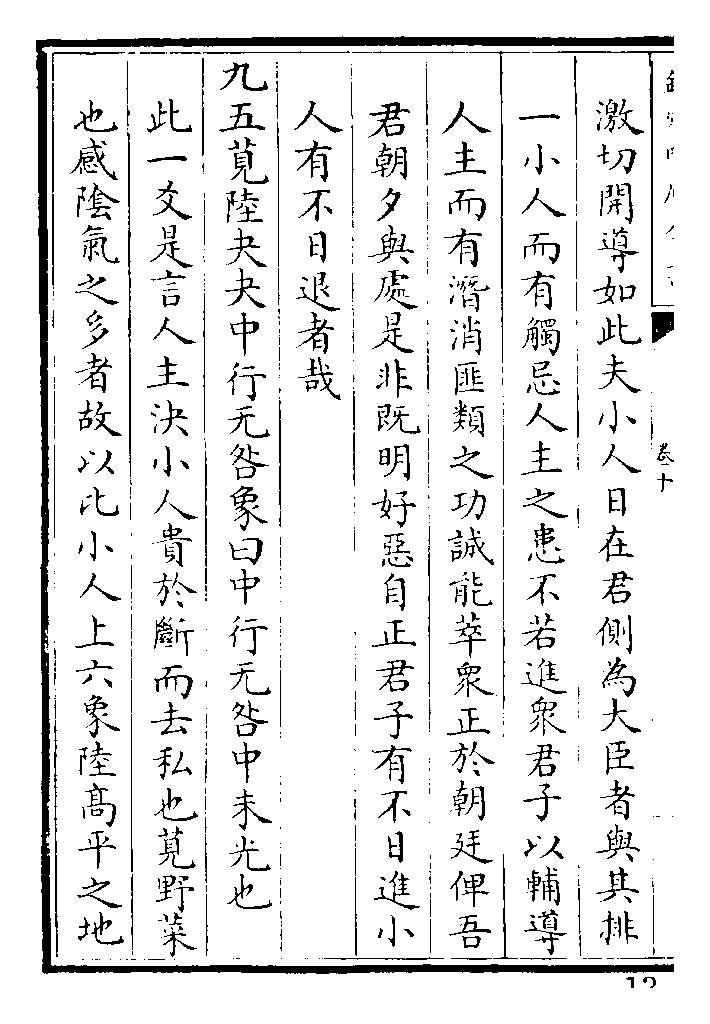 卷十
激切開導如此夫小人日在君側為大臣者與其排
一小人而有觸忌人主之患不若進衆君子以輔導
人主而有潛消匪類之功誠能萃衆正於朝廷俾吾
君朝夕與處是非既明好惡自正君子有不日進小
人有不日退者哉
九五莧陸夬夬中行无咎象曰中行无咎中未光也
此一爻是言人主決小人貴於斷而去私也莧野菜
也感陰氣之多者故以比小人上六象陸髙平之地
12